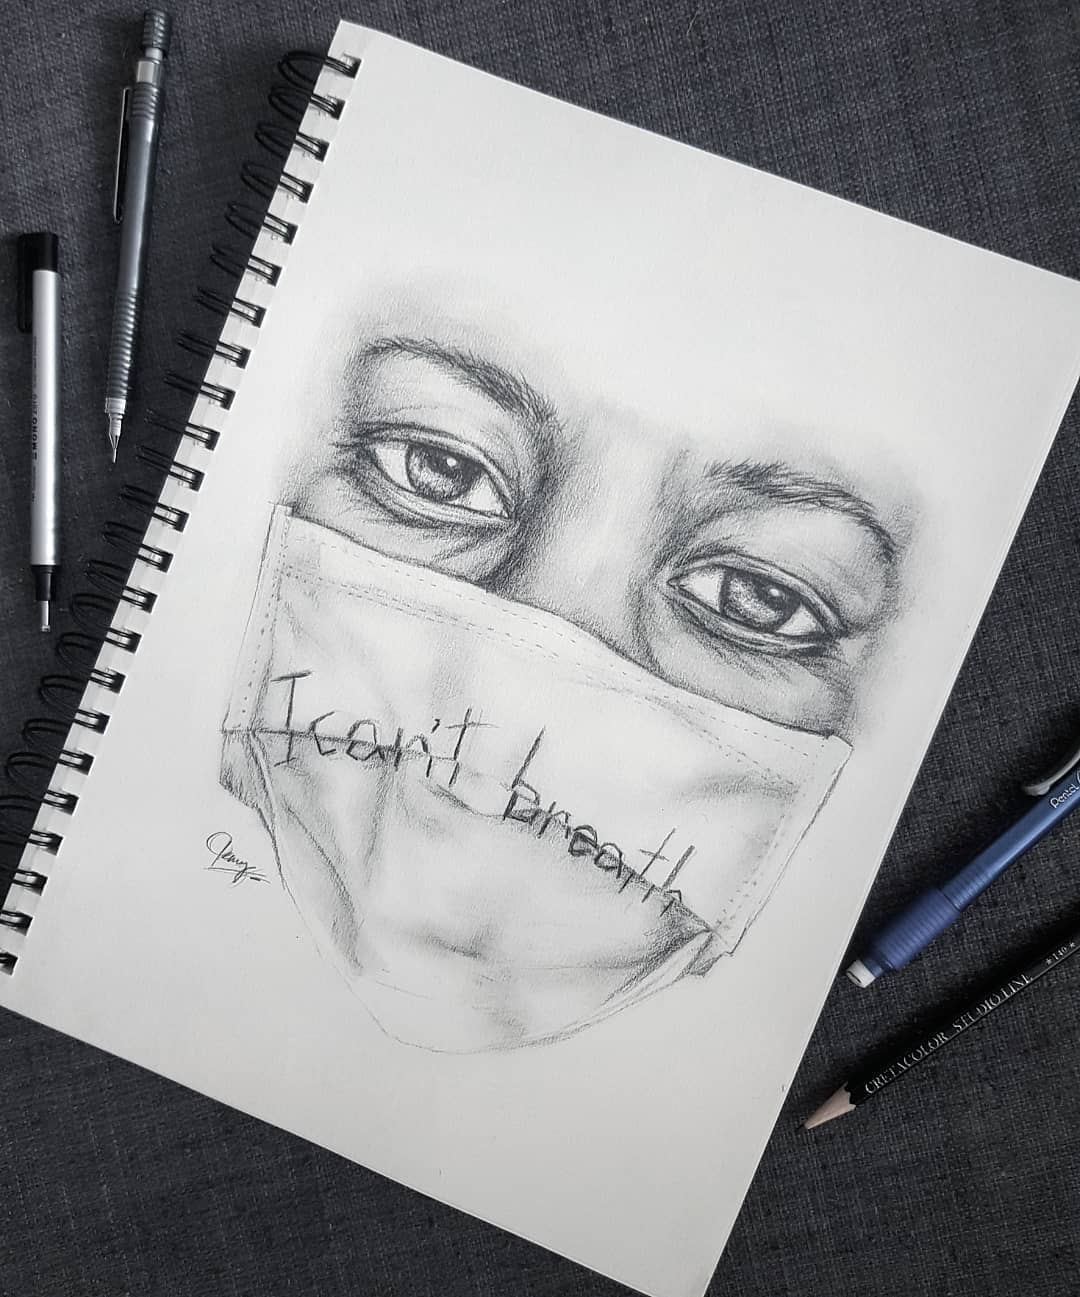 I can't breath
MONO zero
Pentel
CRETACOLOR STUDIO LINE *140*